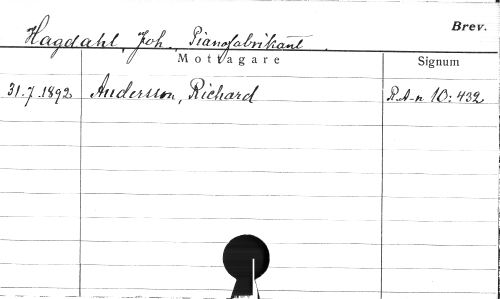 Brev.
Hagdahl, Joh., Pianofabrikant.
Mottagare Signum
31.7.1892 Andersson, Richard R.A-n 10:432